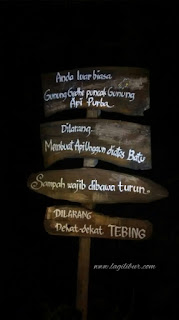 Anda luar biasa
Gunung Gedhe puncak Gunung
Api Purba
Dilarang
Membuat Api Unggun diatas Batu
Sampah wajib dibawa turun..
DILARANG
Dekat-dekat TEBING
www.lagilibur.com